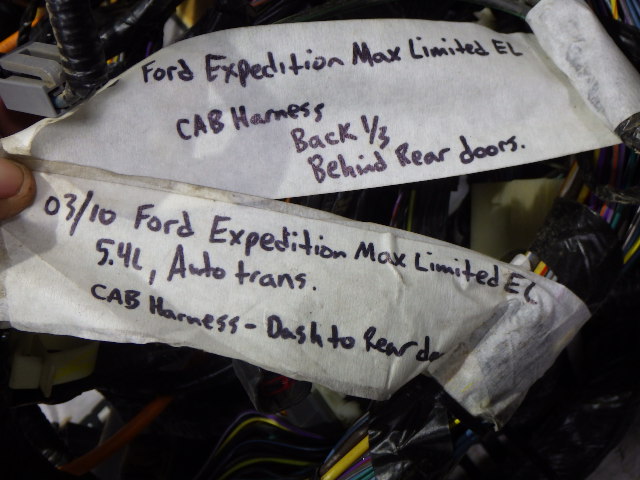 Ford Expedition Max Limited EL
CAB Harness
Back 1/3
Behind Rear doors.
03/10 Ford Expedition Max Limited EL
5.4L, Auto trans.
CAB Harness - Dash to Rear do